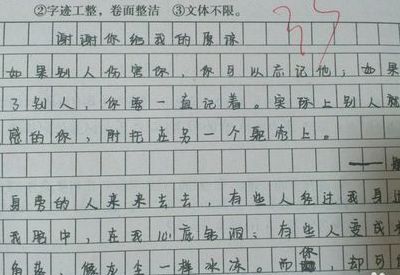 ②字迹工整,卷面整洁 ③文体不限。
谢谢你给我的原谅
如果别人伤害你,你可以忘记他;如果
了别人,你要一直记着。实际上别人就
感的你,附托在另一个躯壳上。
身旁的人来来去去,有些人经过我身边
我路中,在我心底钻洞;有些人变成
角落,像灰尘一样冰冻。而你却可